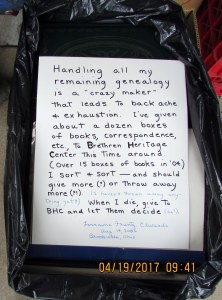 Handling all my
remaining genealogy
is a "crazy maker"
that leads to back ache
& exhaustion. I've given
about a dozen boxes
of books, correspondence,
etc, to Brethren Heritage
Center this time around.
(Over 15 boxes of books in '04)
I sort & sort — and should
give more (*) or throw away
more (**).
When I die, give to
BHC and let them decide
04/19/2017 09:41